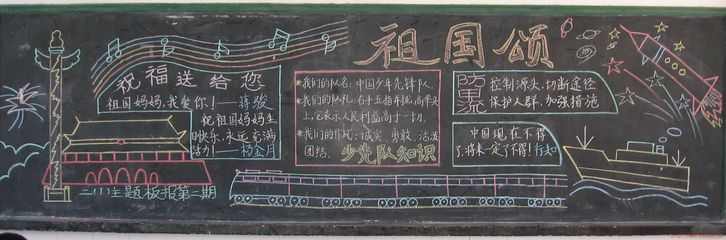 祖国颂
祝福送给您
祖国妈妈,我爱你!——蒋骏
祝祖国妈妈生
日快乐,永远充满
活力!——杨金月
二(1)主题板报第二期
●我们的队名:中国少年先锋队。
●我们的队礼:右手五指并拢,高举头
上,它表示人民利益高于一切。
●我们的作风:诚实、勇敢、活泼
团结。
少先队知识
防甲流
控制源头,切断途径
保护人群,加强措施
中国现在不得
了,将来一定了不得!